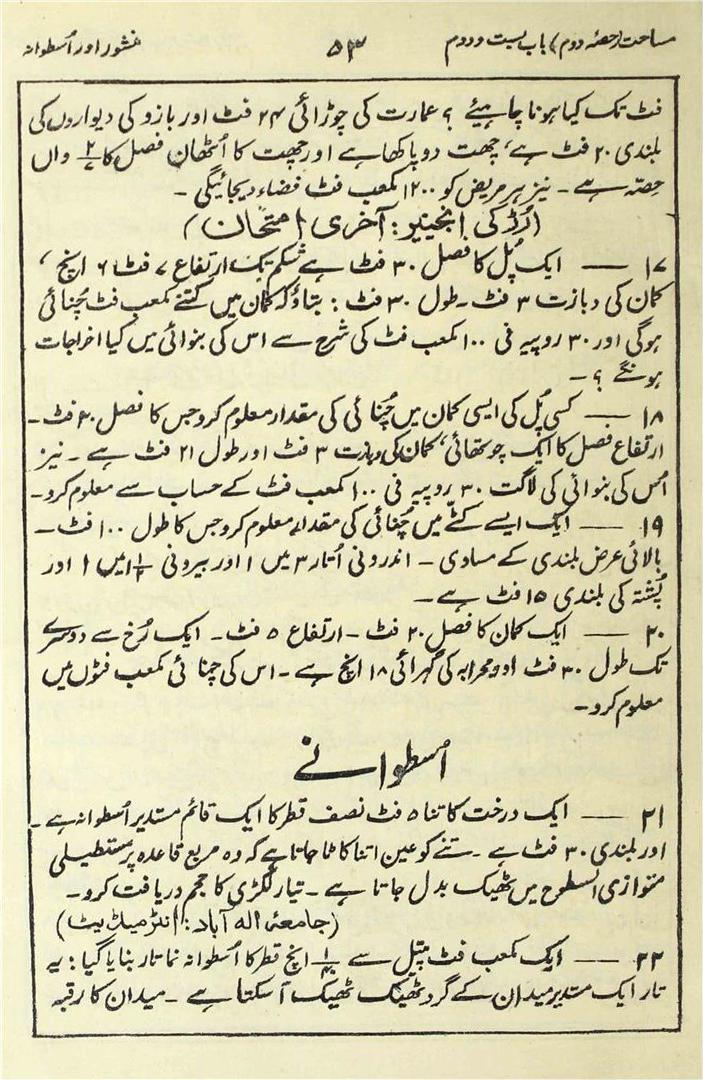 مساحت (حصۂ دوم) باب بست و دوم
۵۳
منشور اور اُسطوانہ
فٹ تک کیا ہونا چاہیئے ؟ عمارت کی چوڑائی ۲۴ فٹ اور بازو کی دیواروں کی
بلندی ۲۰ فٹ ہے، چھت دوپاکھا ہے اور چھت کا اُٹھان فصل کا ۲/۷ واں
حِصّہ ہے ۔ نیز ہر مریض کو ۱۲۰۰ مکعب فٹ فضاء دیجائیگی ۔
(رُڑکی انجینیر: آخری امتحان)
۱۷ — ایک پُل کا فصل ۳۰ فٹ ہے شکم تک ارتفاع ۷ فٹ ۶ اِنچ ،
کمان کی دبازت ۳ فٹ ۔ طول ۳۰ فٹ : بتاؤ کہ کمان میں کتنے مکعب فٹ چُنائی
ہوگی اور ۳۰ روپیہ فی ۱۰۰ مکعب فٹ کی شرح سے اس کی بنوائی میں کیا اخراجات
ہونگے ؟ ۔
۱۸ — کسی پُل کی ایسی کمان میں چُنائی کی مقدار معلوم کرو جس کا فصل ۴۰ فٹ ۔
ارتفاع فصل کا ایک چوتھائی، کمان کی دبازت ۳ فٹ اور طول ۲۱ فٹ ہے ۔ نیز
اُس کی بنوائی کی لاگت ۳۰ روپیہ فی ۱۰۰ مکعب فٹ کے حساب سے معلوم کرو ۔
۱۹ — ایک ایسے کٹّے میں چُنائی کی مقدار معلوم کرو جس کا طول ۱۰۰ فٹ ۔
بالائی عرض بلندی کے مساوی ۔ اندرونی اُتار ۳ میں ۱ اور بیرونی میں ۱ اور
پُشتہ کی بلندی ۱۵ فٹ ہے ۔
۲۰ — ایک کمان کا فصل ۲۰ فٹ ۔ ارتفاع ۵ فٹ ۔ ایک رُخ سے دوسرے
تک طول ۳۰ فٹ اور محرابہ کی گہرائی ۱۸ اِنچ ہے ۔ اس کی چنائی مکعب فٹوں میں
معلوم کرو ۔
اُسطوانے
۲۱ — ایک درخت کا تنا ۵ فٹ نصف قطر کا ایک قائم مستدیر اُسطوانہ ہے ۔
اور بلندی ۳۰ فٹ ہے ۔ تنے کو عین اتنا کاٹا جاتا ہے کہ وہ مربع قاعدہ پر مستطیلی
متوازی السطوح میں ٹھیک بدل جاتا ہے ۔ تیار لکڑی کا حجم دریافت کرو ۔
(جامعۂ الہ آباد: انٹر میڈیٹ)
۲۲ — ایک مکعب فٹ پیتل سے ۱/۴۰ اِنچ قطر کا اُسطوانہ نما تار بنایا گیا : یہ
تار ایک مستدیر میدان کے گرد ٹھیک ٹھیک آ سکتا ہے ۔ میدان کا رقبہ